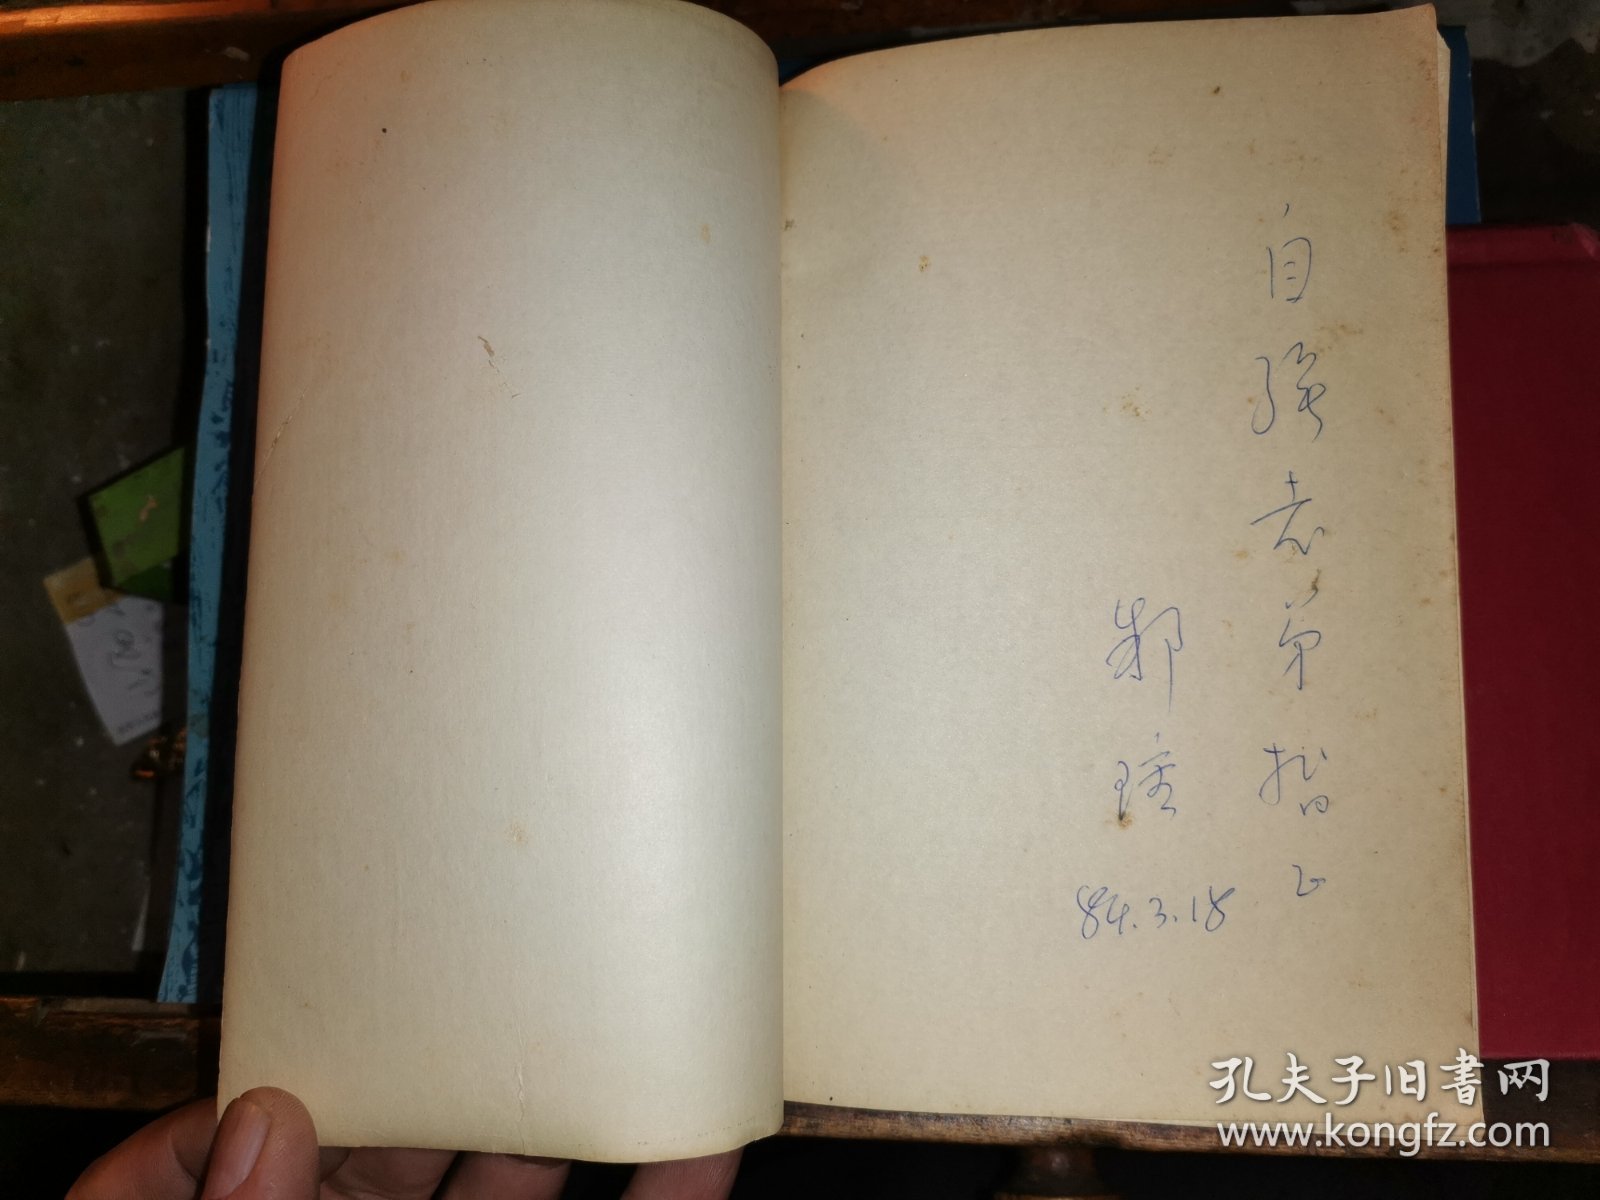 自強老弟指正
鄭瑄
84.3.18
孔夫子旧書网
www.kongfz.com